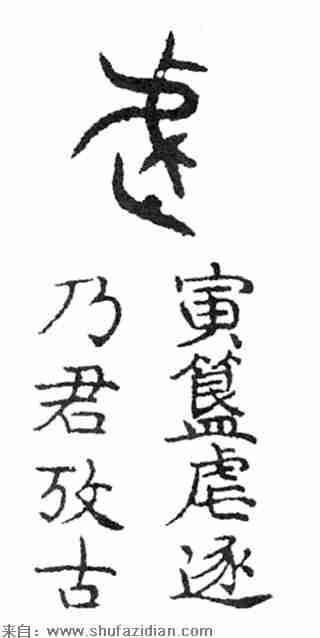 虐
寅簋虐逐
乃君攷古
来自：www.shufazidian.com